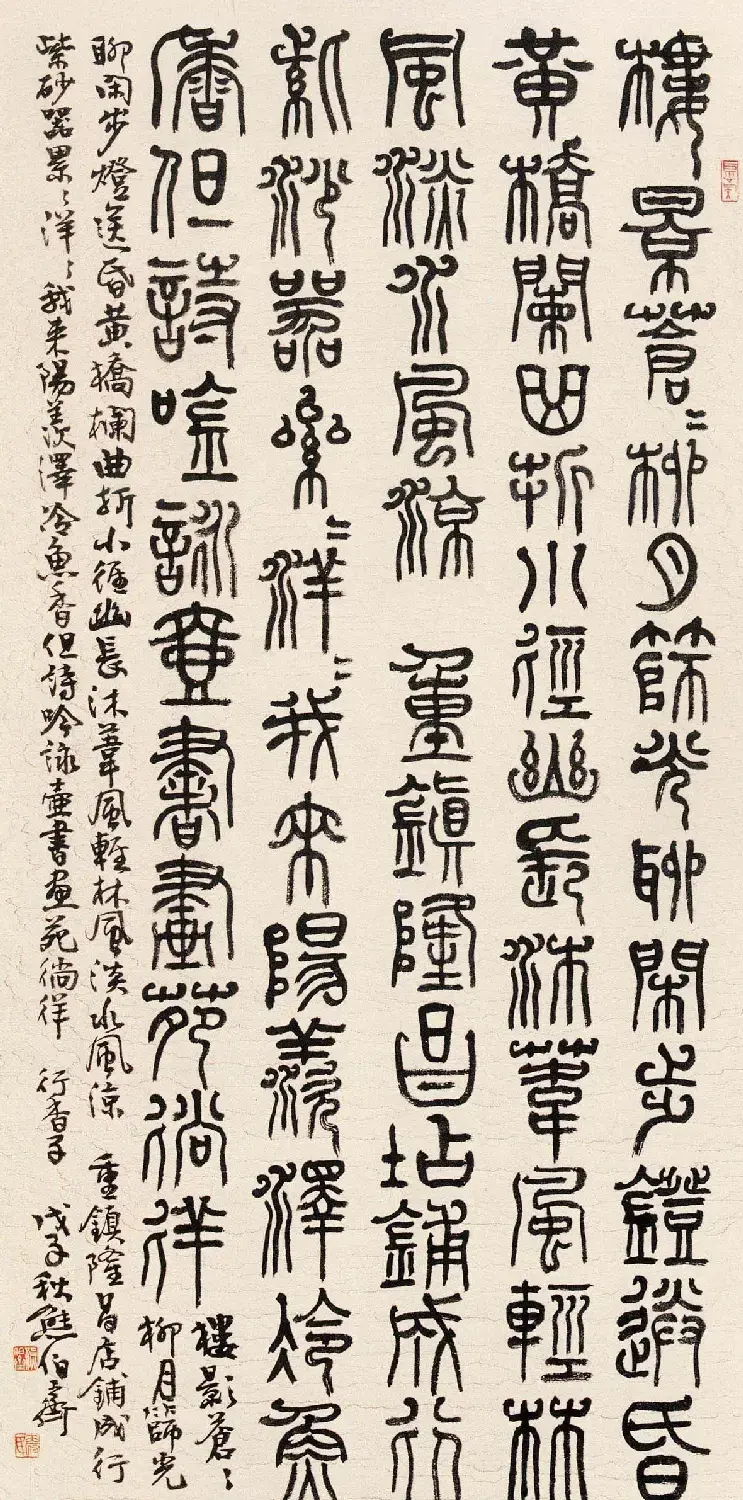 樓景蒼〻柳月篩光聊閒步鐙送昏
黃橋闌曲折小徑幽長沐葦風輕林
風淡水風涼 重鎮隆昌坫鋪成行
紫沙器纍〻洋〻我來陽羨澤冷魚
香但詩唫詠壺書畫苑徜徉
樓影蒼〻
柳月篩光
聊閑步燈送昏黃橋欄曲折小徑幽長沐葦風輕林風淡水風涼 重鎮隆昌店鋪成行
紫砂器累〻洋〻我来陽羨澤冷魚香但詩吟詠壺書画苑徜徉 行香子 戊子秋熊伯齊